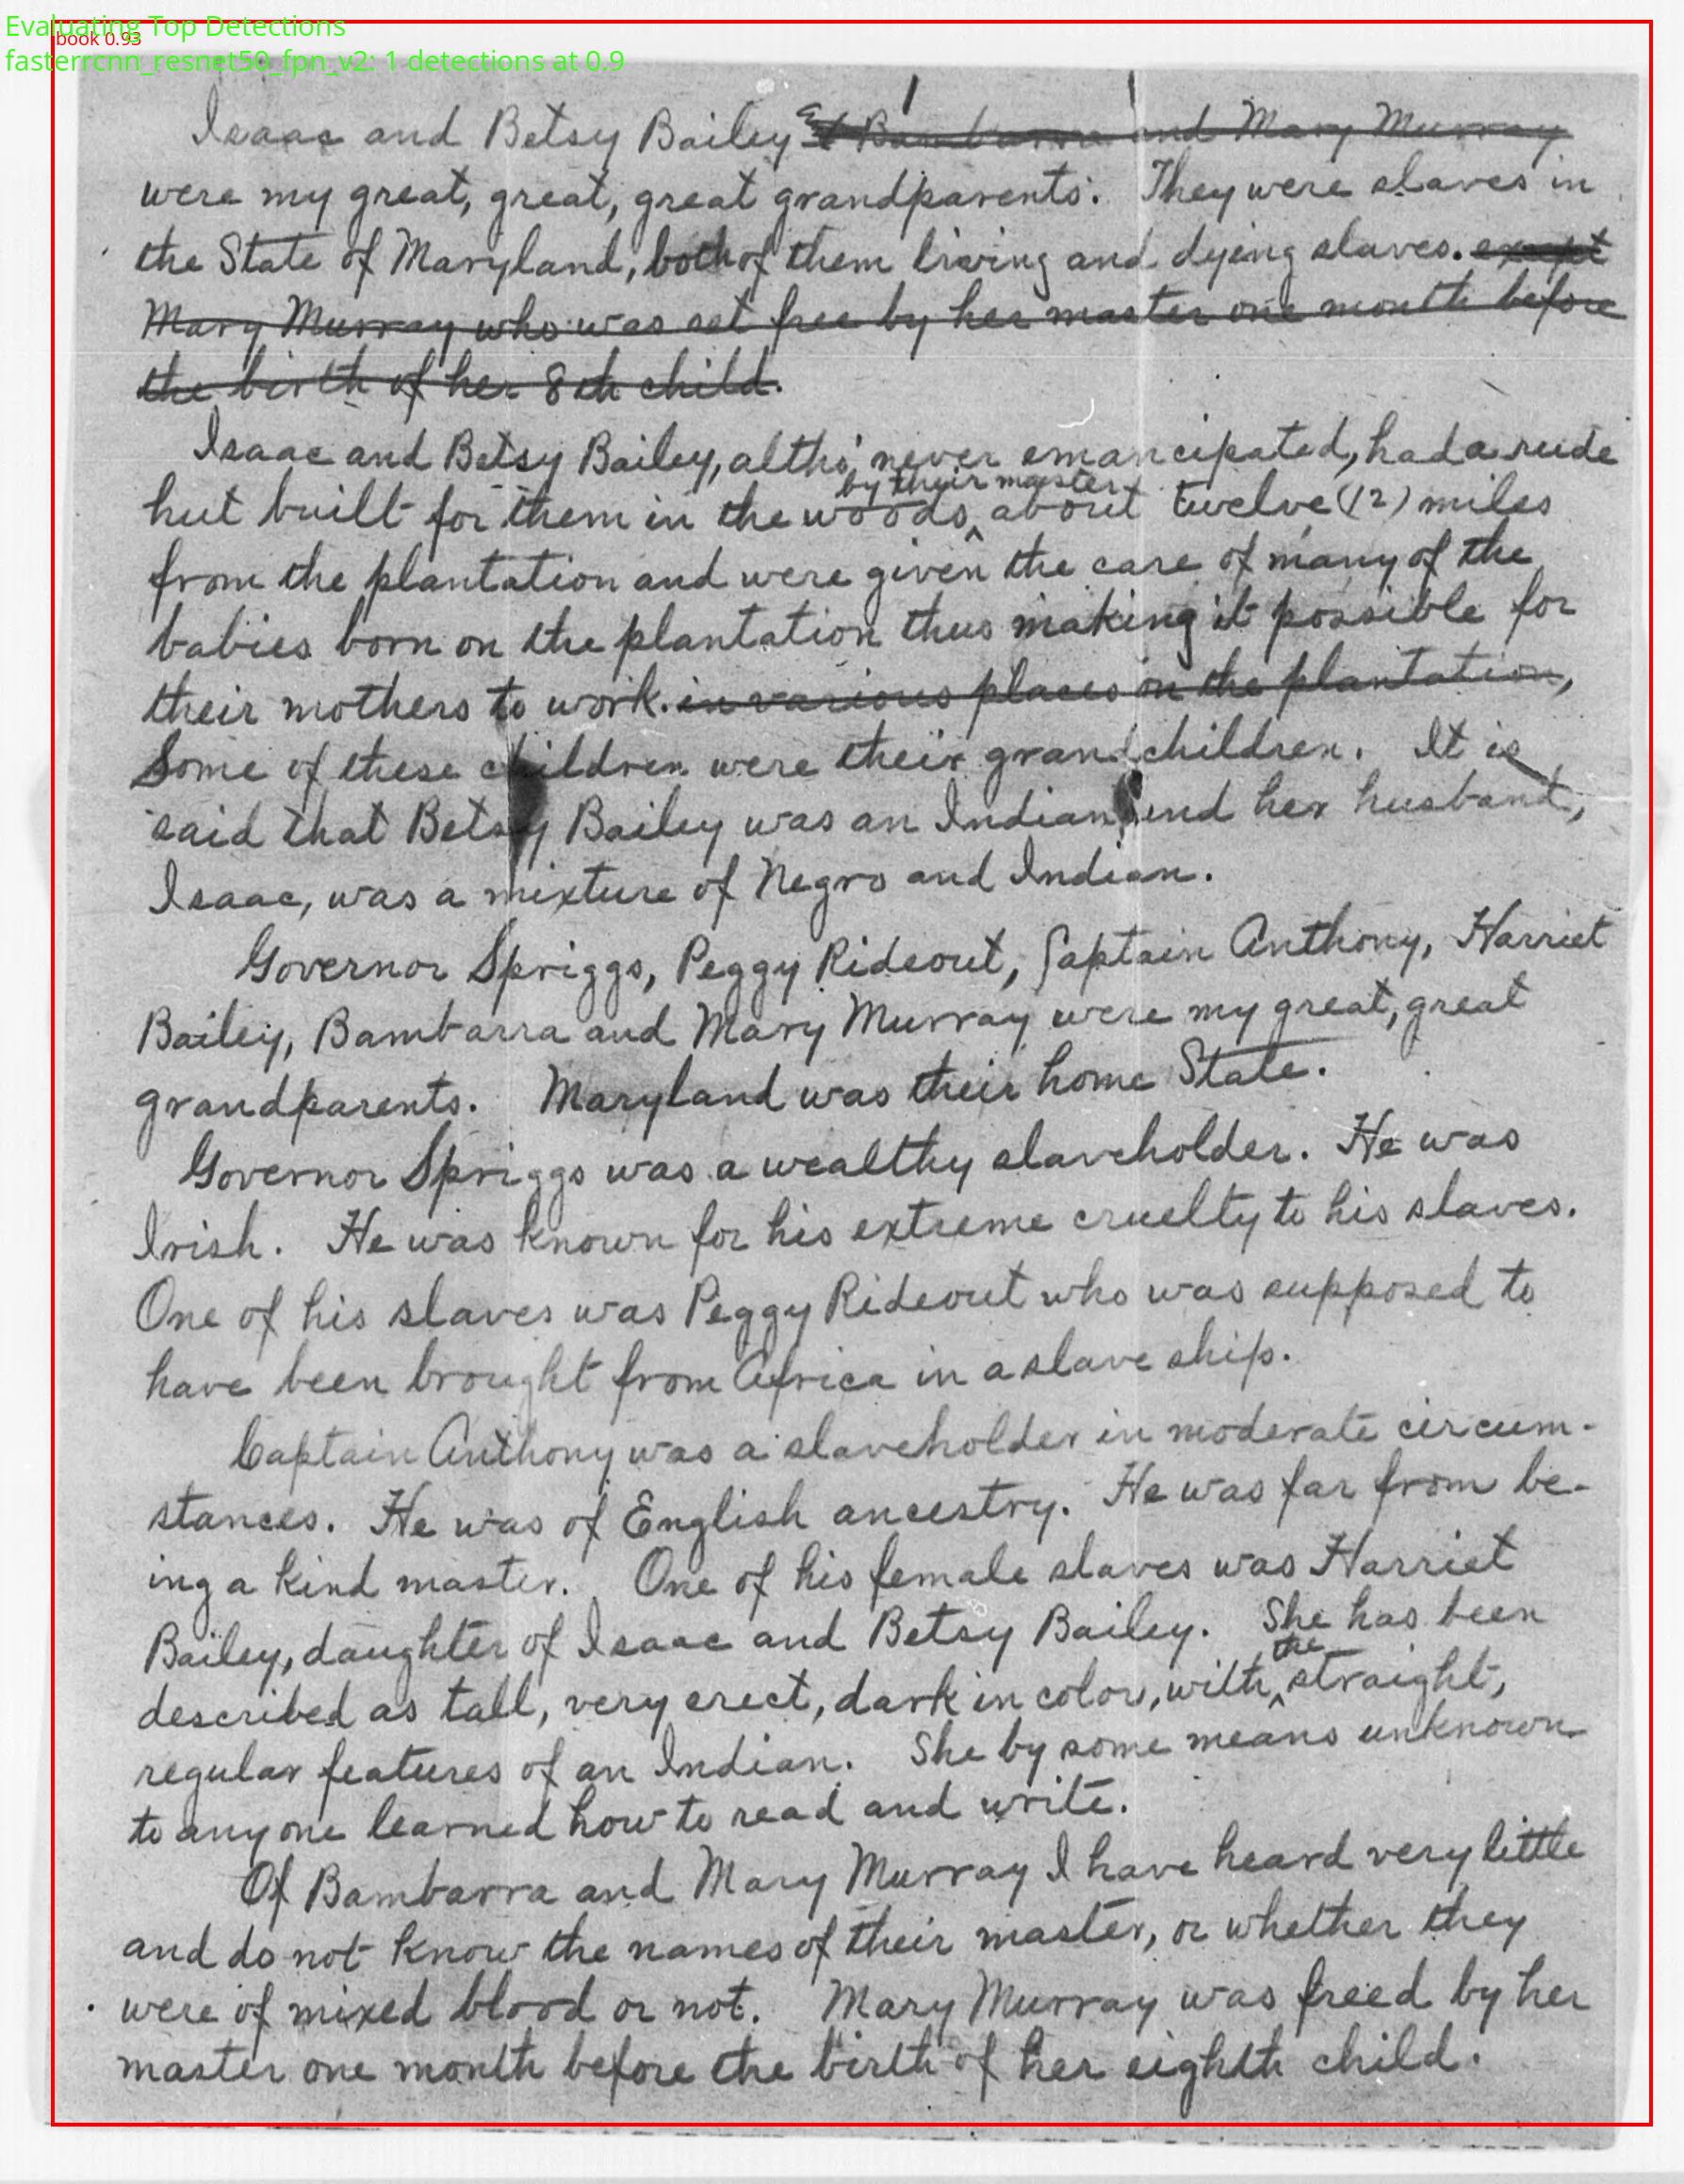 Evaluating Top Detections
book 0.93
fasterrcnn_resnet50_fpn_v2: 1 detections at 0.9
Isaac and Betsy Bailey Bambarra and Mary Murray
were my great, great, great grandparents. They were slaves in
the State of Maryland, both of them living and dying slaves. except
Mary Murray who was set free by her master one month before
the birth of her 8th child.
Isaac and Betsy Bailey, altho' never emancipated, had a rude
by their master
hut built for them in the woods about twelve (12) miles
from the plantation and were given the care of many of the
babies born on the plantation thus making it possible for
their mothers to work. in various places on the plantation,
Some of these children were their grandchildren. It is
said that Betsy Bailey was an Indian and her husband,
Isaac, was a mixture of Negro and Indian.
Governor Spriggs, Peggy Rideout, Captain Anthony, Harriet
Bailey, Bambarra and Mary Murray were my great, great
grandparents. Maryland was their home State.
Governor Spriggs was a wealthy slaveholder. He was
Irish. He was known for his extreme cruelty to his slaves.
One of his slaves was Peggy Rideout who was supposed to
have been brought from Africa in a slave ship.
Captain Anthony was a slaveholder in moderate circum-
stances. He was of English ancestry. He was far from be-
ing a kind master. One of his female slaves was Harriet
Bailey, daughter of Isaac and Betsy Bailey. She has been
the
described as tall, very erect, dark in color, with straight,
regular features of an Indian. She by some means unknown
to anyone learned how to read and write.
Of Bambarra and Mary Murray I have heard very little
and do not know the names of their master, or whether they
were of mixed blood or not. Mary Murray was freed by her
master one month before the birth of her eighth child.